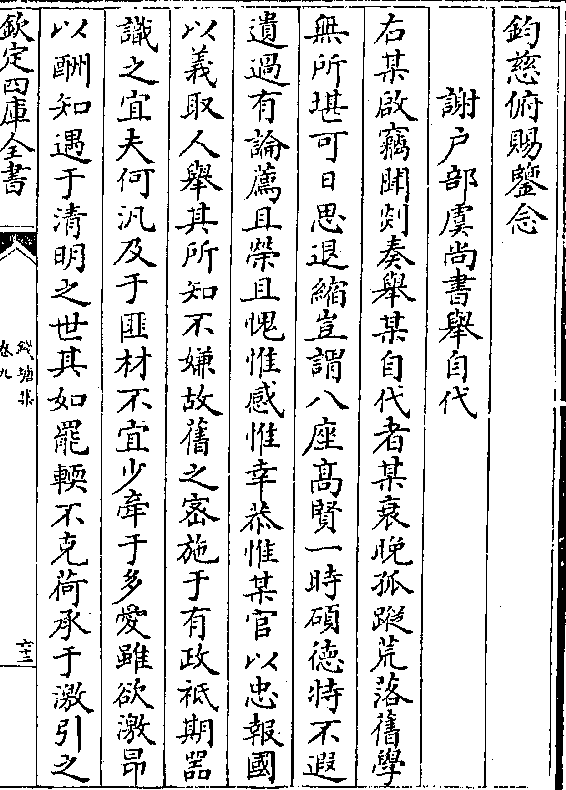 鈞慈俯賜鑒念
謝户部虞尚書舉自代
右某啟竊聞剡奏舉某自代者某衰晚孤蹤荒落舊學
無所堪可日思退縮豈謂八座髙賢一時碩德特不遐
遺過有論薦且榮且愧惟感惟幸恭惟某官以忠報國
以義取人舉其所知不嫌故舊之密施于有政祗期器
識之宜夫何汎及于匪材不宜少牽于多愛雖欲激昂
以酬知遇于清明之世其如罷輭不克荷承于激引之
欽定四庫全書
錢塘集
卷九